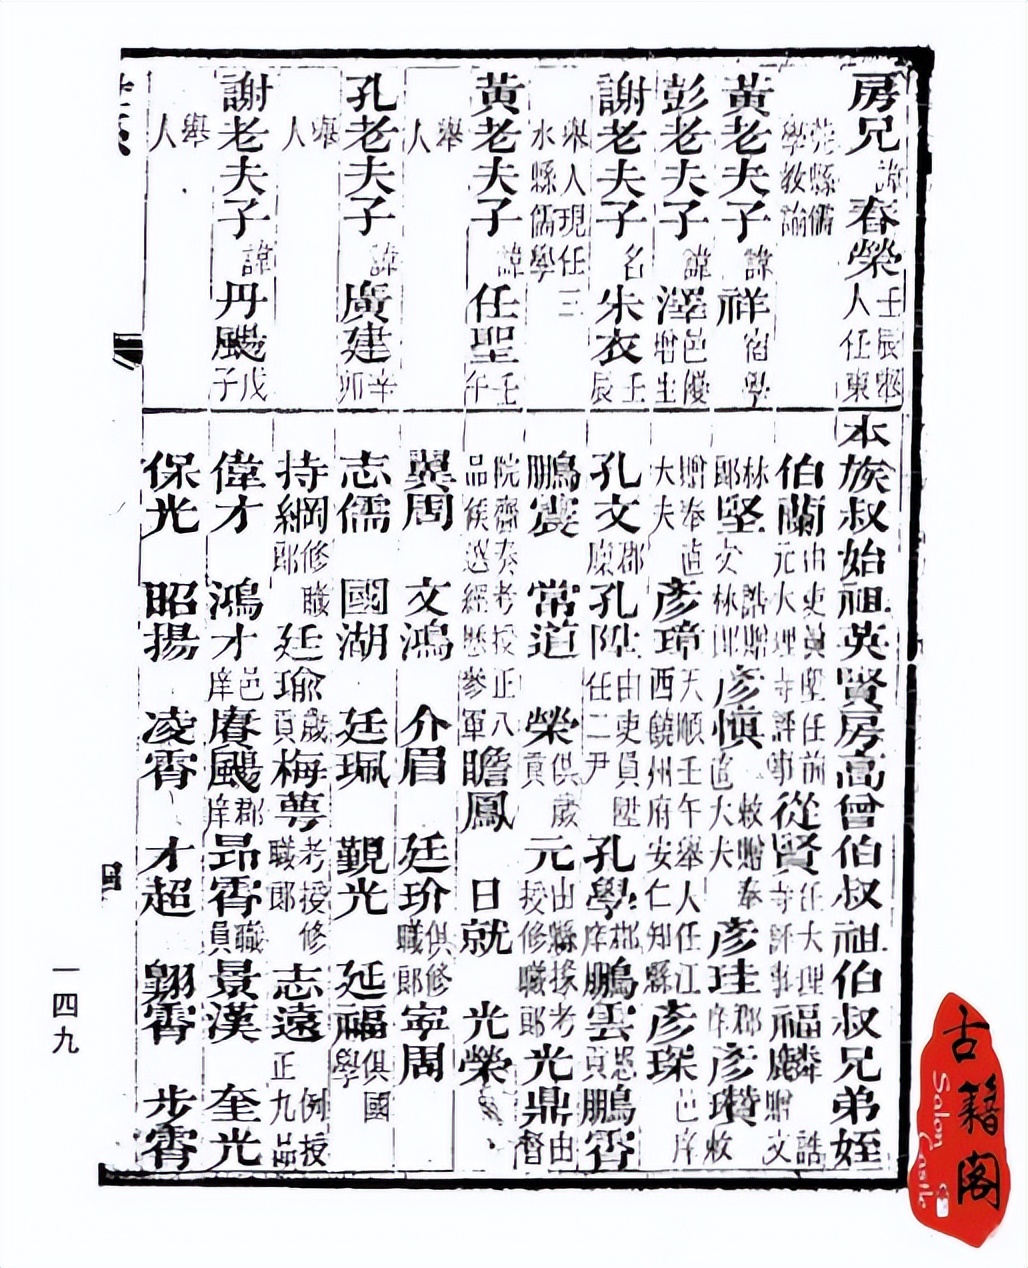 房兄諱春榮壬辰舉人任東
莞縣儒學教諭
黃老夫子諱祥宿學
彭老夫子諱澤邑優增生
謝老夫子名朱衣壬辰
舉人現任三水縣儒學
黃老夫子諱任聖壬午
舉人
孔老夫子諱廣建辛卯
舉人
謝老夫子諱丹颺戊子
舉人
本族叔始祖英賢房高曾伯叔祖伯叔兄弟姪
伯蘭由吏員歷任前元大理寺評事 從賢任大理寺評事 福麟誥贈文
林郎 堅誥贈文林郎 彥慎敕贈奉直大夫 彥珪郡庠 彥瓚敕
贈奉直大夫 彥璋天順壬午舉人任江西饒州府安仁知縣 彥琛邑庠
孔文郡廩 孔陞由吏員陞任二尹 孔學郡庠 鵬雲恩貢 鵬霄
鵬震 常道 榮俱歲貢 元由縣掾考授修職郎 光鼎由督
院齎奏考授正八品候選經歷參軍 瞻鳳 日就 光榮
翼周 文鴻 介眉 廷玠俱修職郎 寧周
志儒 國湖 廷珮 觀光 延福俱國學
持綱修職郎 廷瑜歲貢 梅萼考授修職郎 志遠例授正九品
偉才 鴻才邑庠 賡颺郡庠 昂霄職員 景漢 奎光
保光 昭揚 凌霄 才超 翺霄 步霄
四
一四九
古籍阁
Salon Castle